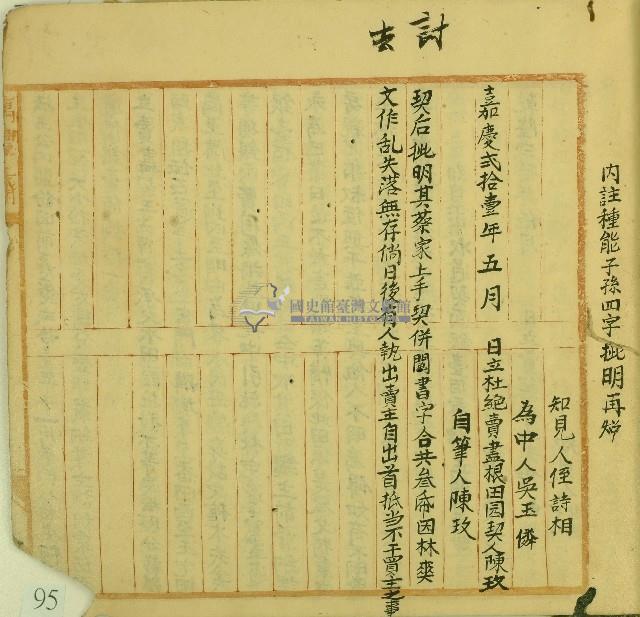 內註種能子孫四字批明再炤
知見人侄詩相
為中人吳玉僯
嘉慶弍拾壹年五月　日立杜絕賣盡根田园契人陳玫
自筆人陳玫
契后批明其蔡家上手契併鬮書字合共叁帋因林爽
文作乱失落無存倘日後有人執出賣主自出首抵当不干買主之事
討去
國史館臺灣文獻館
TAIWAN HISTORICA
95